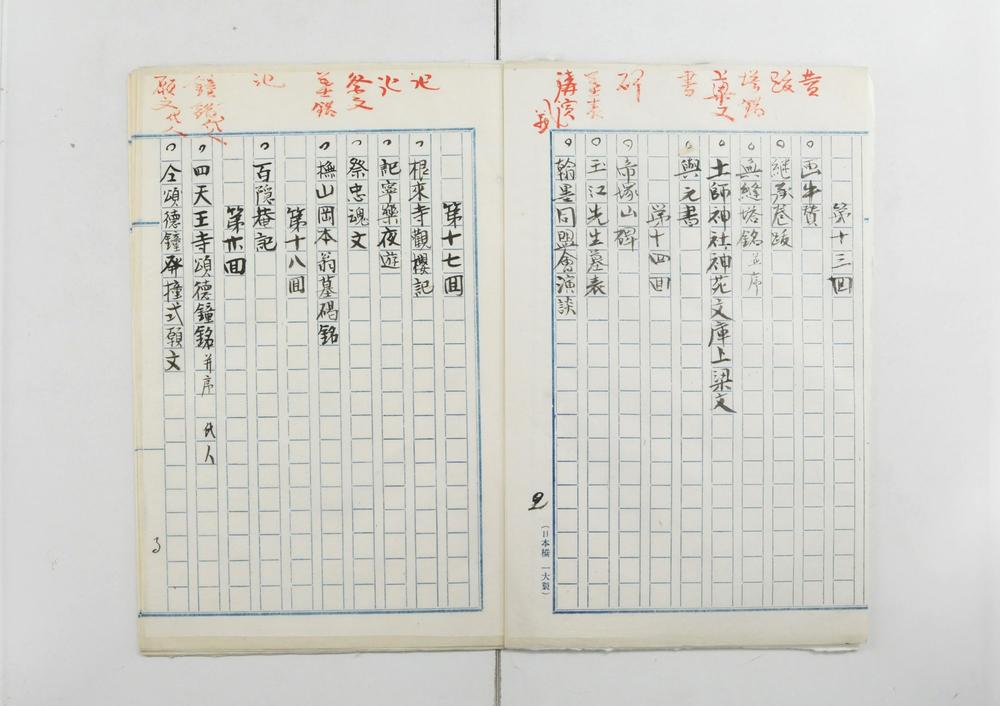 賛
跋
塔銘
書
碑
墓表
講演
第十三回
画牛賛
継承基跋
無縫塔銘並序
土師神社神苑文庫上梁文
與元書
第十四回
帝塚山碑
玉江先生墓表
翰墨同盟會演談
2
(日本橋 一大製)
記
記
祭文
墓銘
記
鐘銘代人
願文代人
第十七回
根來寺觀櫻記
記寧樂夜遊
祭忠魂文
撫山岡本翁墓碣銘
第十八回
百隠菴記
第六回
四天王寺頌德鐘銘并序 代人
仝頌德鐘発撞式願文